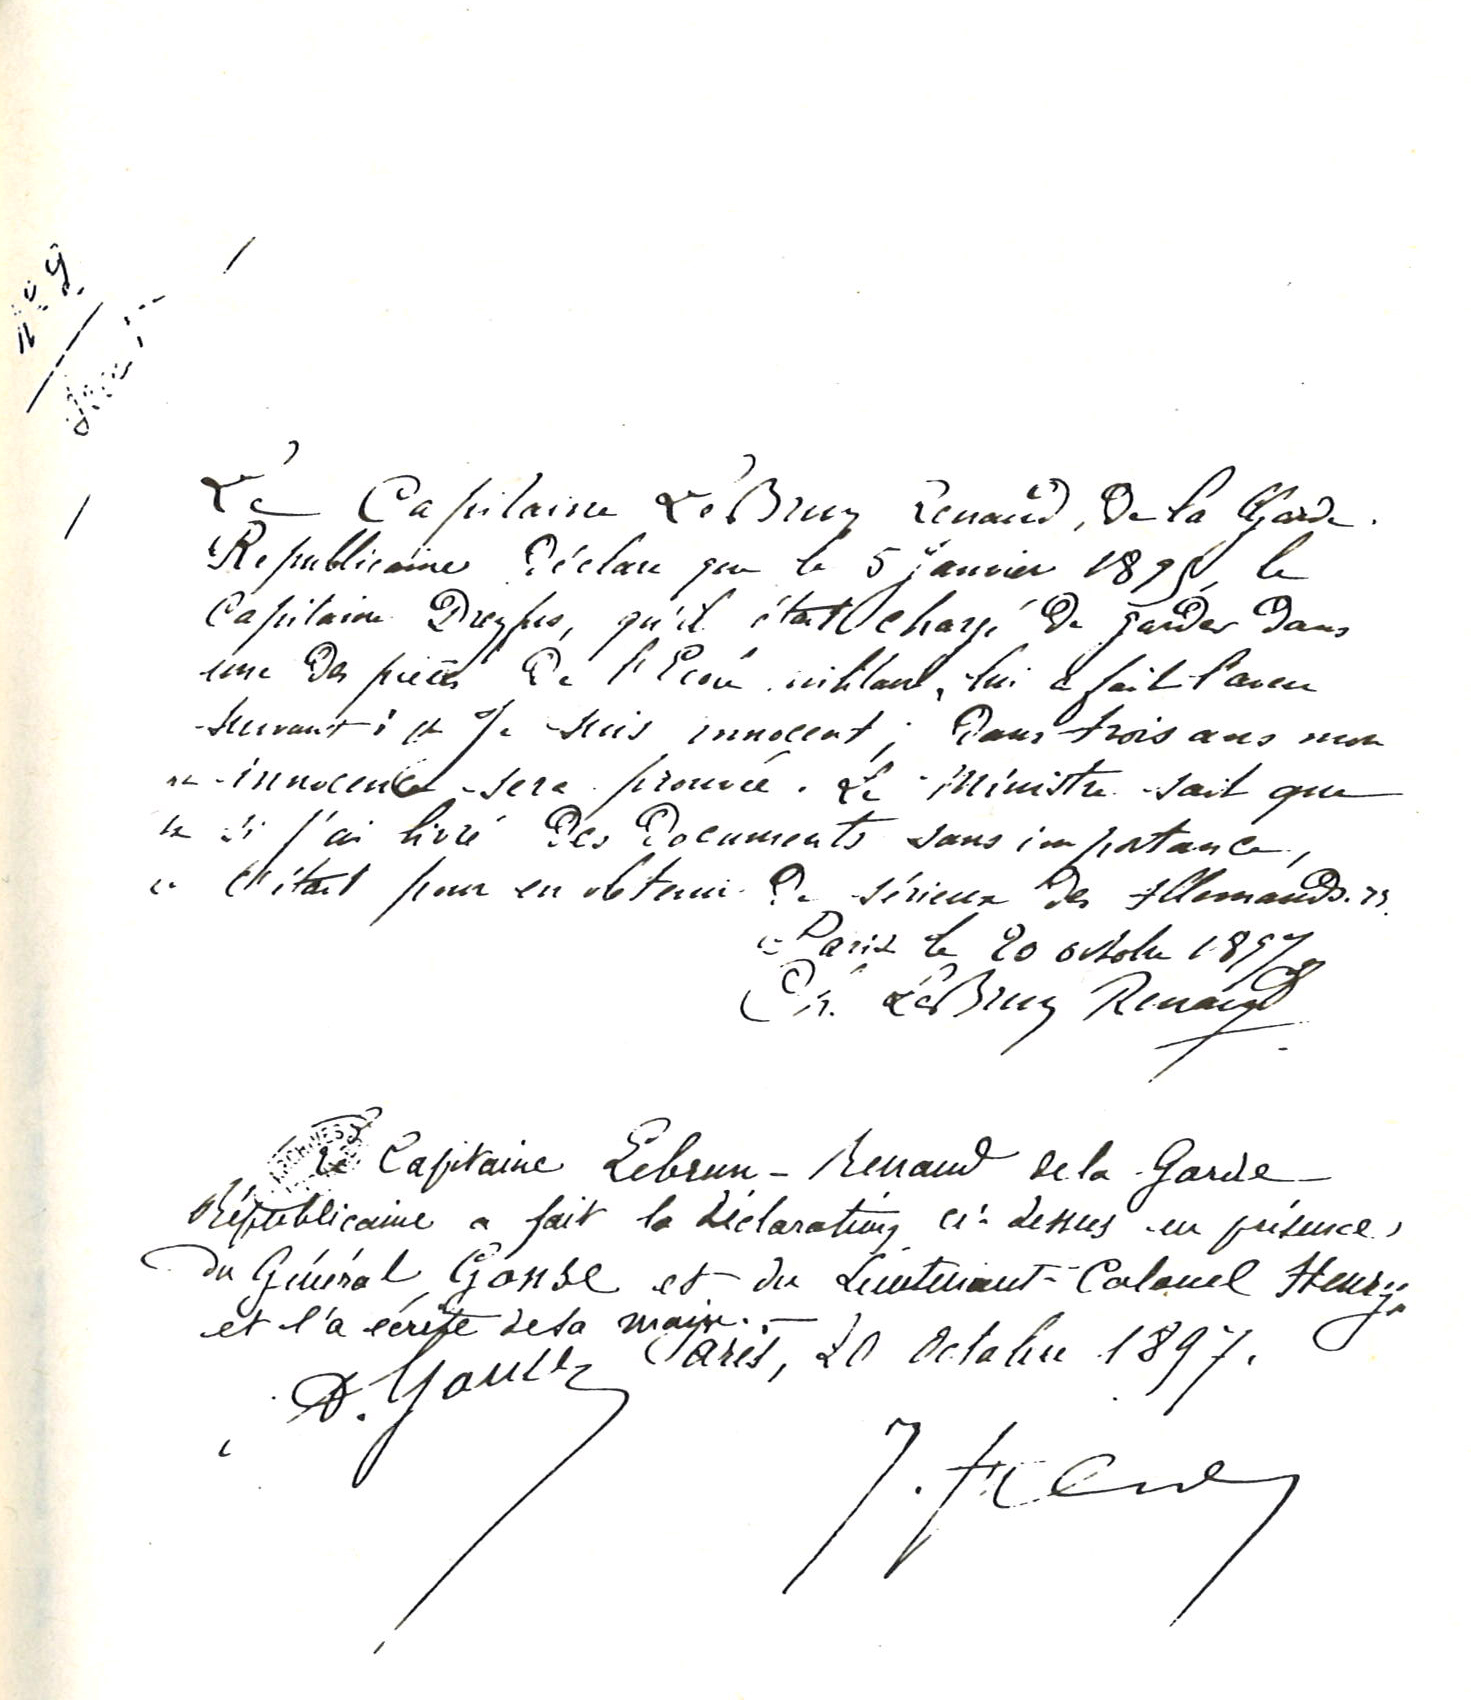 N° 9
Le Capitaine LeBrun Renaud, de la Garde
Républicaine déclare que le 5 janvier 1895, le
Capitaine Dreyfus, qu'il était chargé de garder dans
une des pièces de l'Ecole militaire, lui a fait l'aveu
suivant : « Je suis innocent ; dans trois ans mon
« innocence sera prouvée. Le Ministre sait que
« si j'ai livré des documents sans importance,
« c'était pour en obtenir de sérieux des Allemands. »
Paris le 20 octobre 1897
Ch. LeBrun Renaud
ARCHIVES
Le Capitaine Lebrun-Renaud de la Garde
Républicaine a fait la déclaration ci-dessus en présence
du Général Gonse et du Lieutenant-Colonel Henry
et l'a écrite de sa main.
Paris, 20 Octobre 1897.
A. Gonse
J. Henry